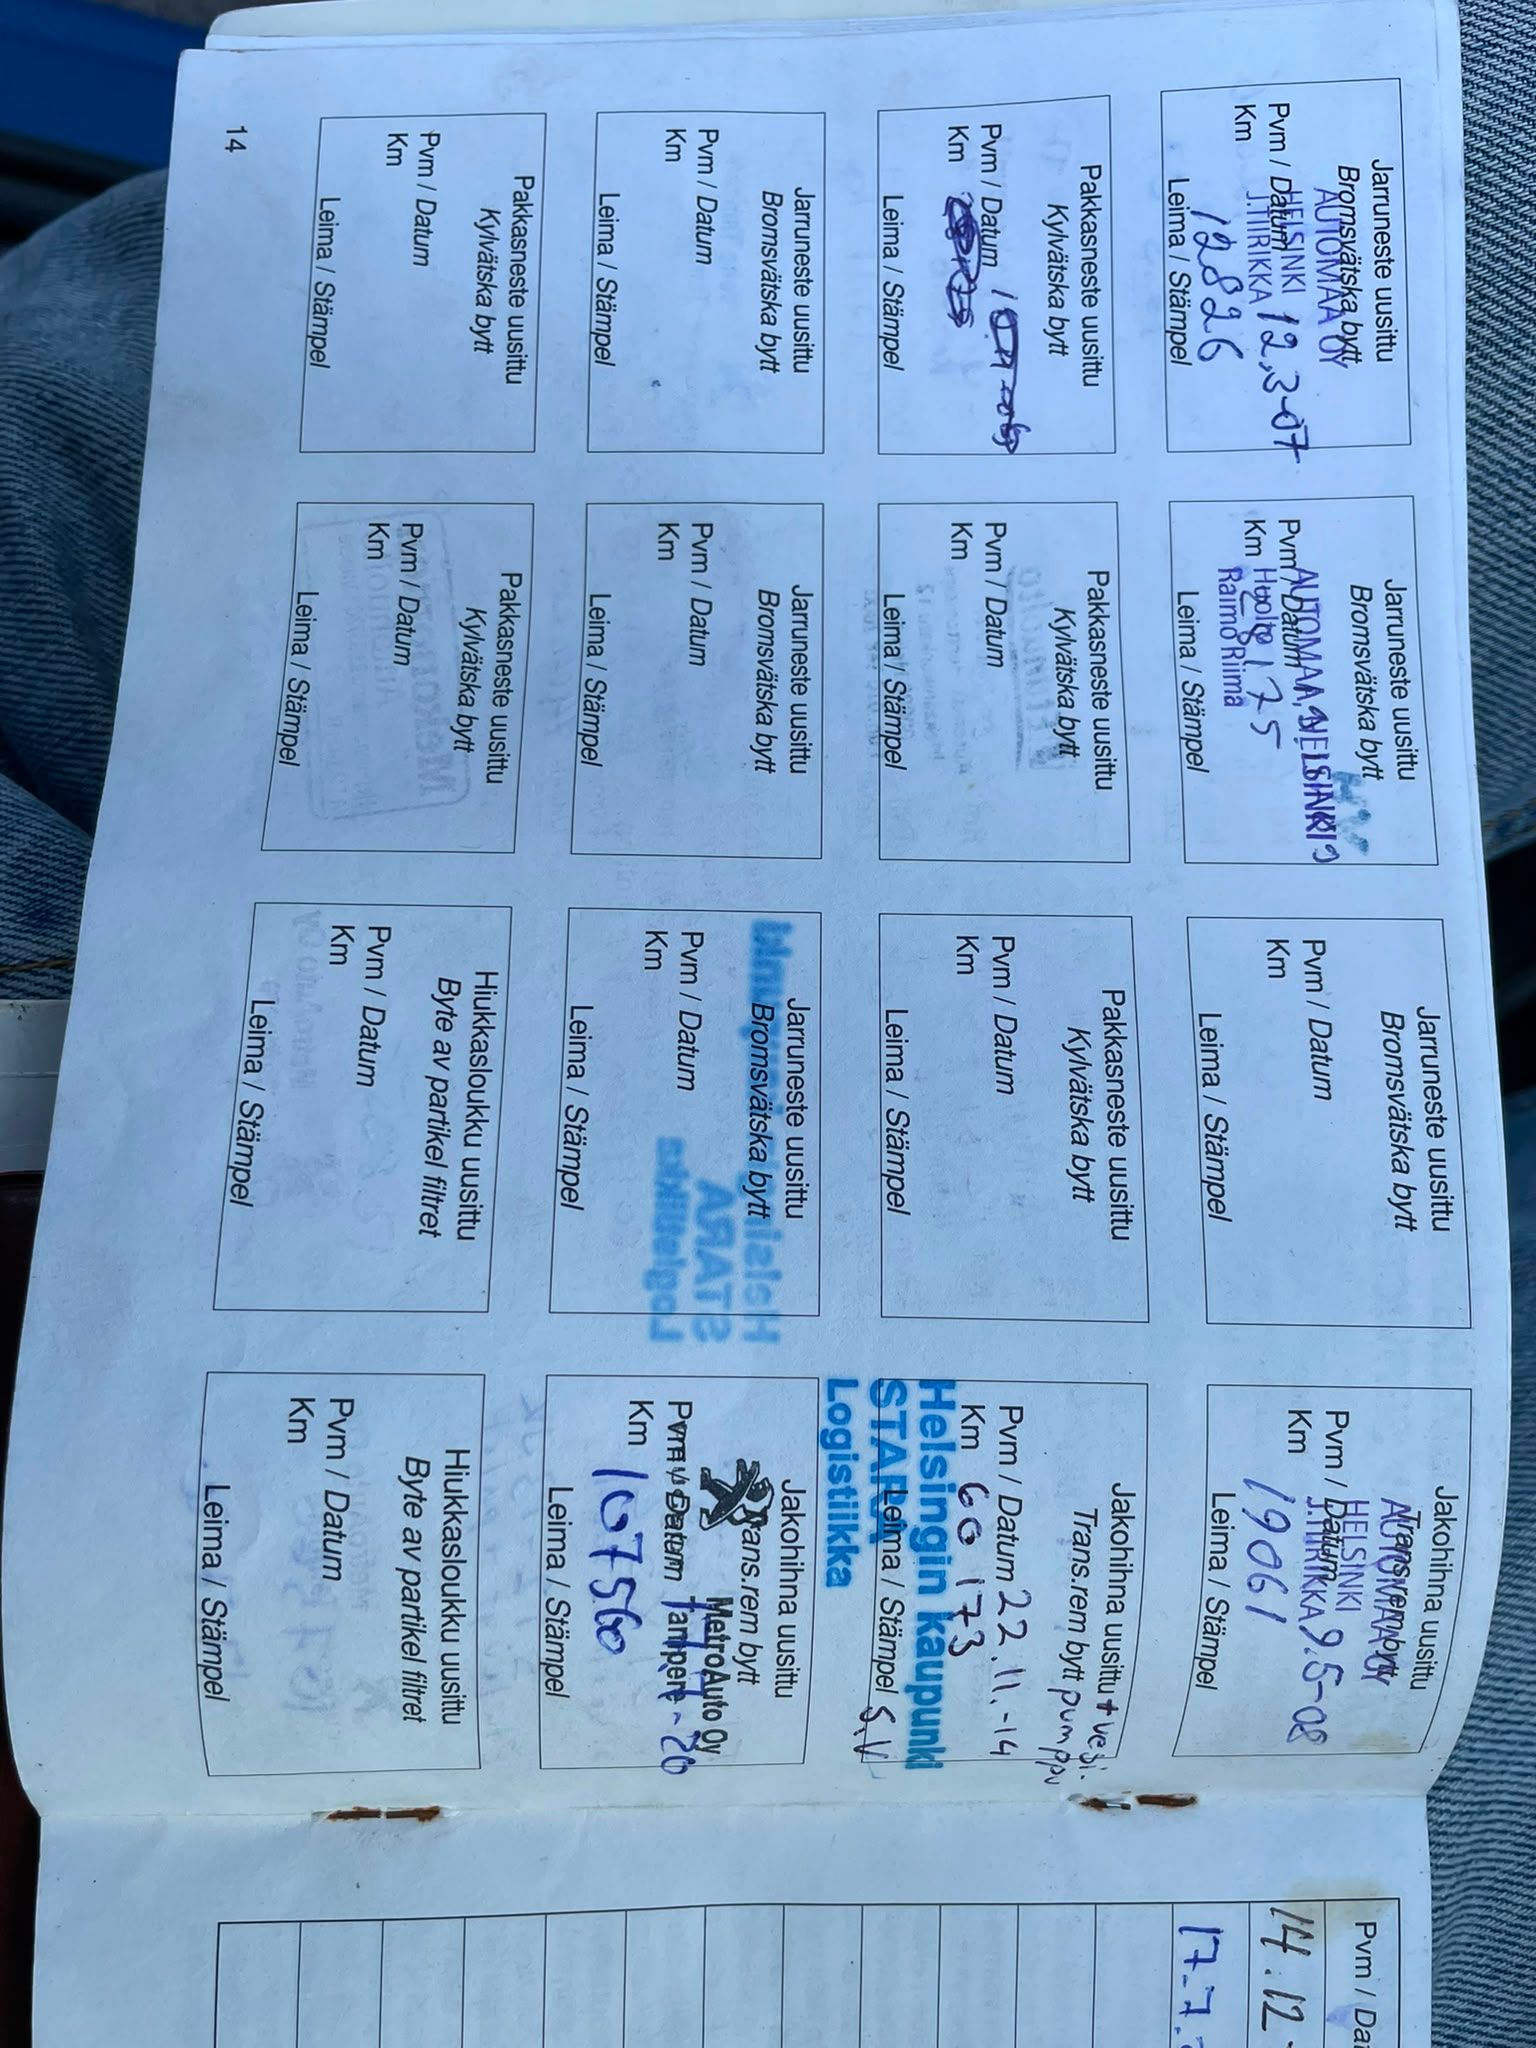 Jarruneste uusittu
Bromsvätska bytt
AUTOMAA OY
HELSINKI
J.TIIRIKKA
Pvm / Datum 12,3-07
Km 12826
Leima / Stämpel
Jarruneste uusittu
Bromsvätska bytt
AUTOMAA, HELSINKI
Pvm / Datum
Huolto
Km 175
Raimo Riima
Leima / Stämpel
Jarruneste uusittu
Bromsvätska bytt
Pvm / Datum
Km
Leima / Stämpel
Jakohihna uusittu
Trans.rem bytt
AUTOMAA OY
HELSINKI
J.TIIRIKKA
Pvm / Datum 9.5-08
Km 19061
Leima / Stämpel
Pakkasneste uusittu
Kylvätska bytt
Pvm / Datum
Km
Leima / Stämpel
Pakkasneste uusittu
Kylvätska bytt
Pvm / Datum
Km
Leima / Stämpel
Pakkasneste uusittu
Kylvätska bytt
Pvm / Datum
Km
Leima / Stämpel
Jakohihna uusittu + vesi.
Trans.rem bytt pumppu
Pvm / Datum 22.11.-14
Km 60 173
Helsingin kaupunki
STARA
Logistiikka
Leima / Stämpel S.V
Jarruneste uusittu
Bromsvätska bytt
Pvm / Datum
Km
Leima / Stämpel
Jarruneste uusittu
Bromsvätska bytt
Pvm / Datum
Km
Leima / Stämpel
Jarruneste uusittu
Bromsvätska bytt
Pvm / Datum
Km
Leima / Stämpel
Jakohihna uusittu
Trans.rem bytt
MetroAuto Oy
Tampere
Pvm / Datum
Km 107560
Leima / Stämpel
Pakkasneste uusittu
Kylvätska bytt
Pvm / Datum
Km
Leima / Stämpel
Pakkasneste uusittu
Kylvätska bytt
Pvm / Datum
Km
Leima / Stämpel
Hiukkasloukku uusittu
Byte av partikel filtret
Pvm / Datum
Km
Leima / Stämpel
Hiukkasloukku uusittu
Byte av partikel filtret
Pvm / Datum
Km
Leima / Stämpel
14
Pvm /
14.12
17.7.